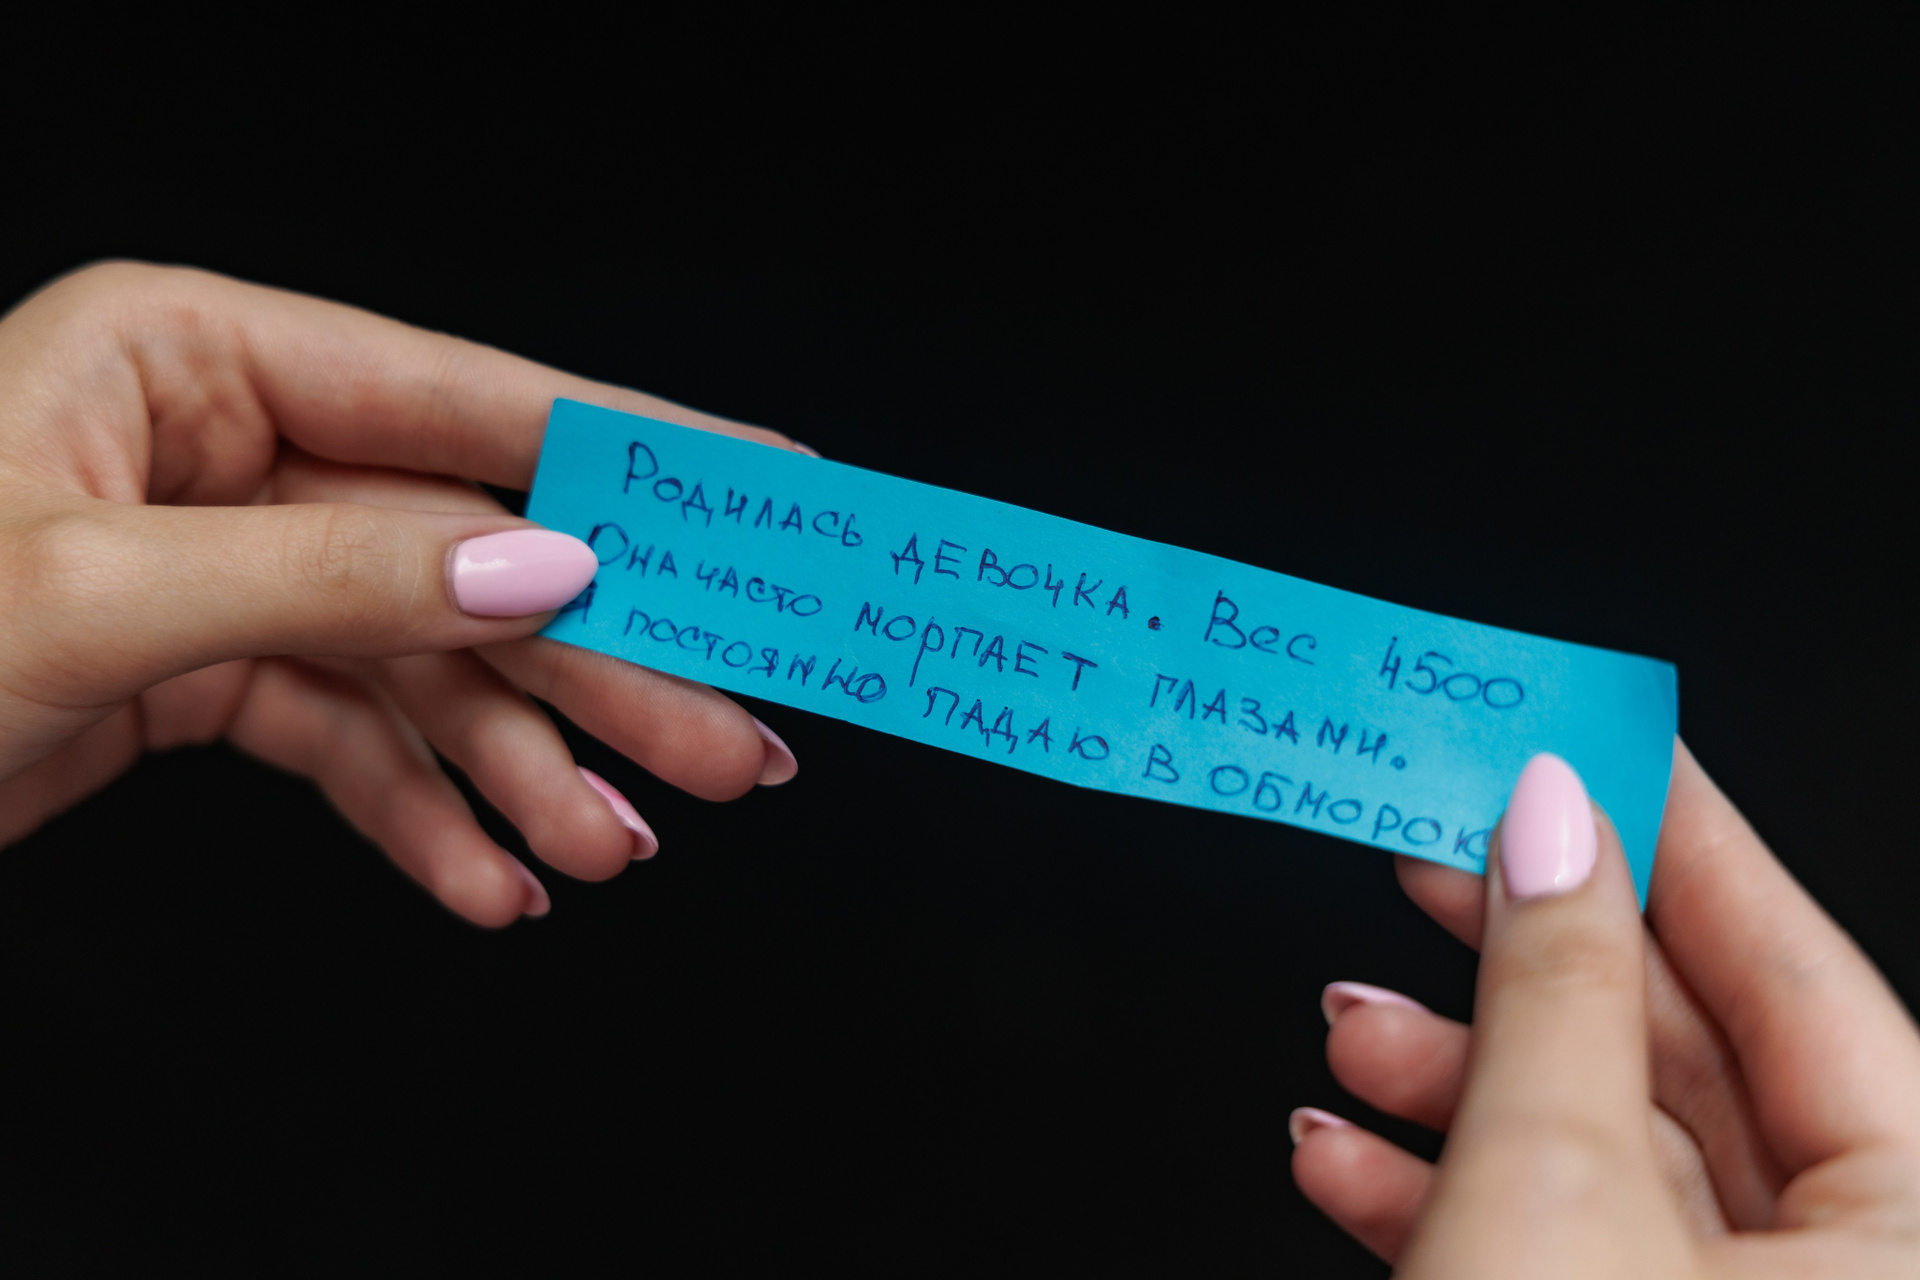 Родилась девочка. Вес 4500
Она часто морпает глазами.
Я постоянно падаю в обморок